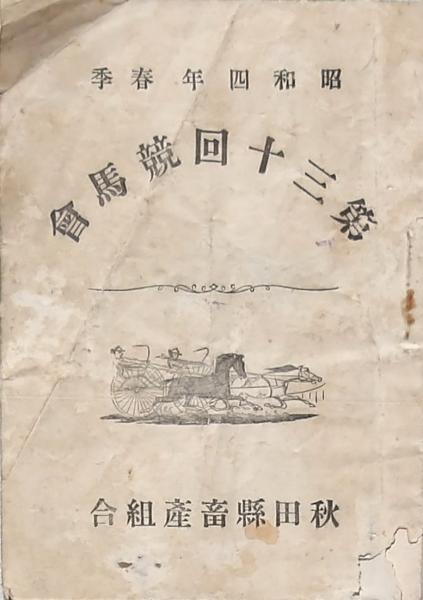 昭和四年春季
第三十回競馬會
秋田縣畜產組合